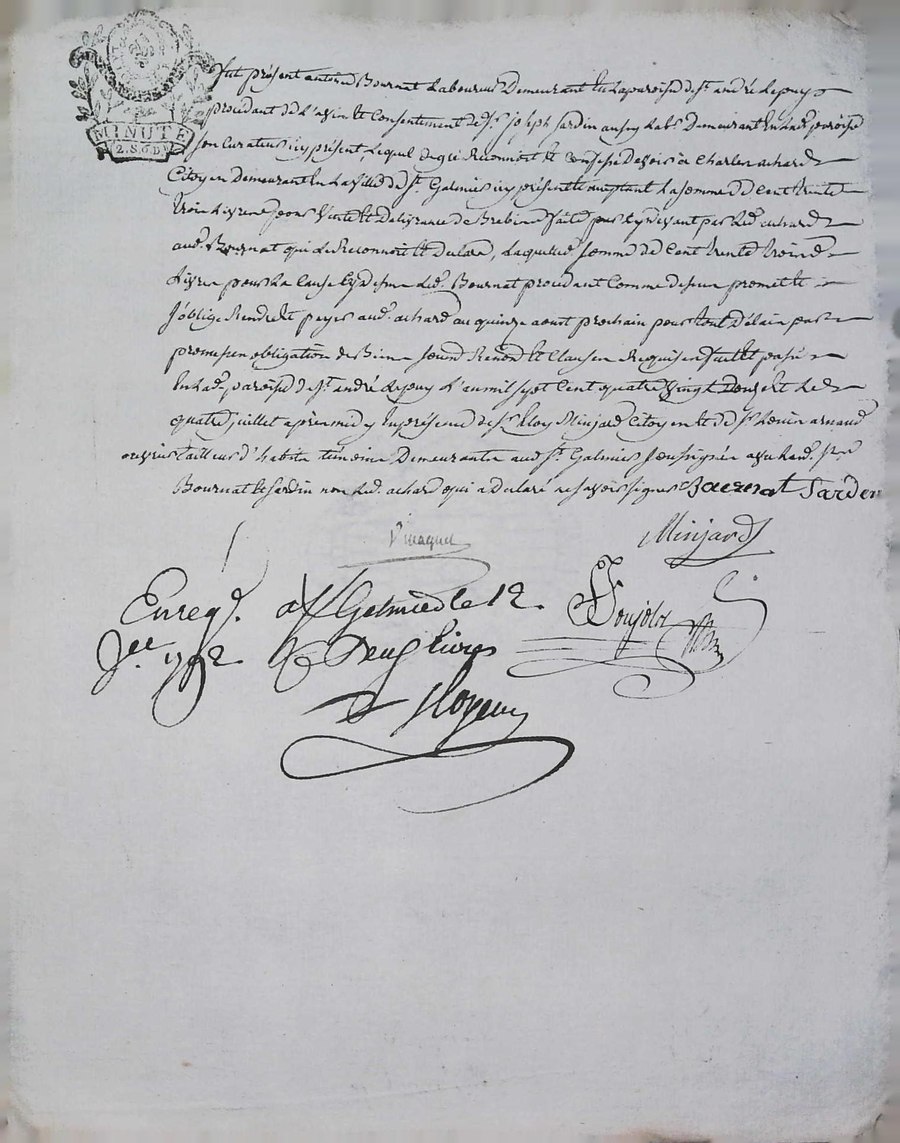 MINUTE
2. S. 6. D
fut présent antoine Bournat Laboureur Demeurant en Laparoisse de St. andré Lepuy
procédant de L'avis et Consentement de Sr. joseph jardin aussy Lab. Demeurant en lad. paroisse
son Curateur icy présent, Lequel de gré Reconnoit et Confesse devoir à Charles achard
Citoyen Demeurant en La ville de St. Galmier icy présent et acceptant La somme de Cent trente
trois Livres pour Vente et Délivrance de Brebis faite par cydevant par Led. achard
aud. Bournat qui Le Reconnoit et declare, Laquelle somme de Cent trente trois
Livres pour La Cause cy dessus Led. Bournat procédant Comme dessus promet et
s'oblige Rendre et payer aud. achard au quinze aoust prochain pour tout Délain par
promesses obligation de Biens soumis Renon. et Clauses Requises fait et passé
en Lad. paroisse de St. andré Lepuy L'an mil sept Cent quatre Vingt Douze et Le
quatre juillet après midy En présence de Sr. Eloy Minjard Citoyen et de Sr. arnaud
ouvrier tailleur d'habits témoins Demeurants aud. St. Galmier soussignés avec Led.
Bournat et jardin non Led. achard qui a Declaré ne savoir signer Bournat Jarden
Minjard
Enreg. a St Galmier le 12
Jet. 1792. Deux livres